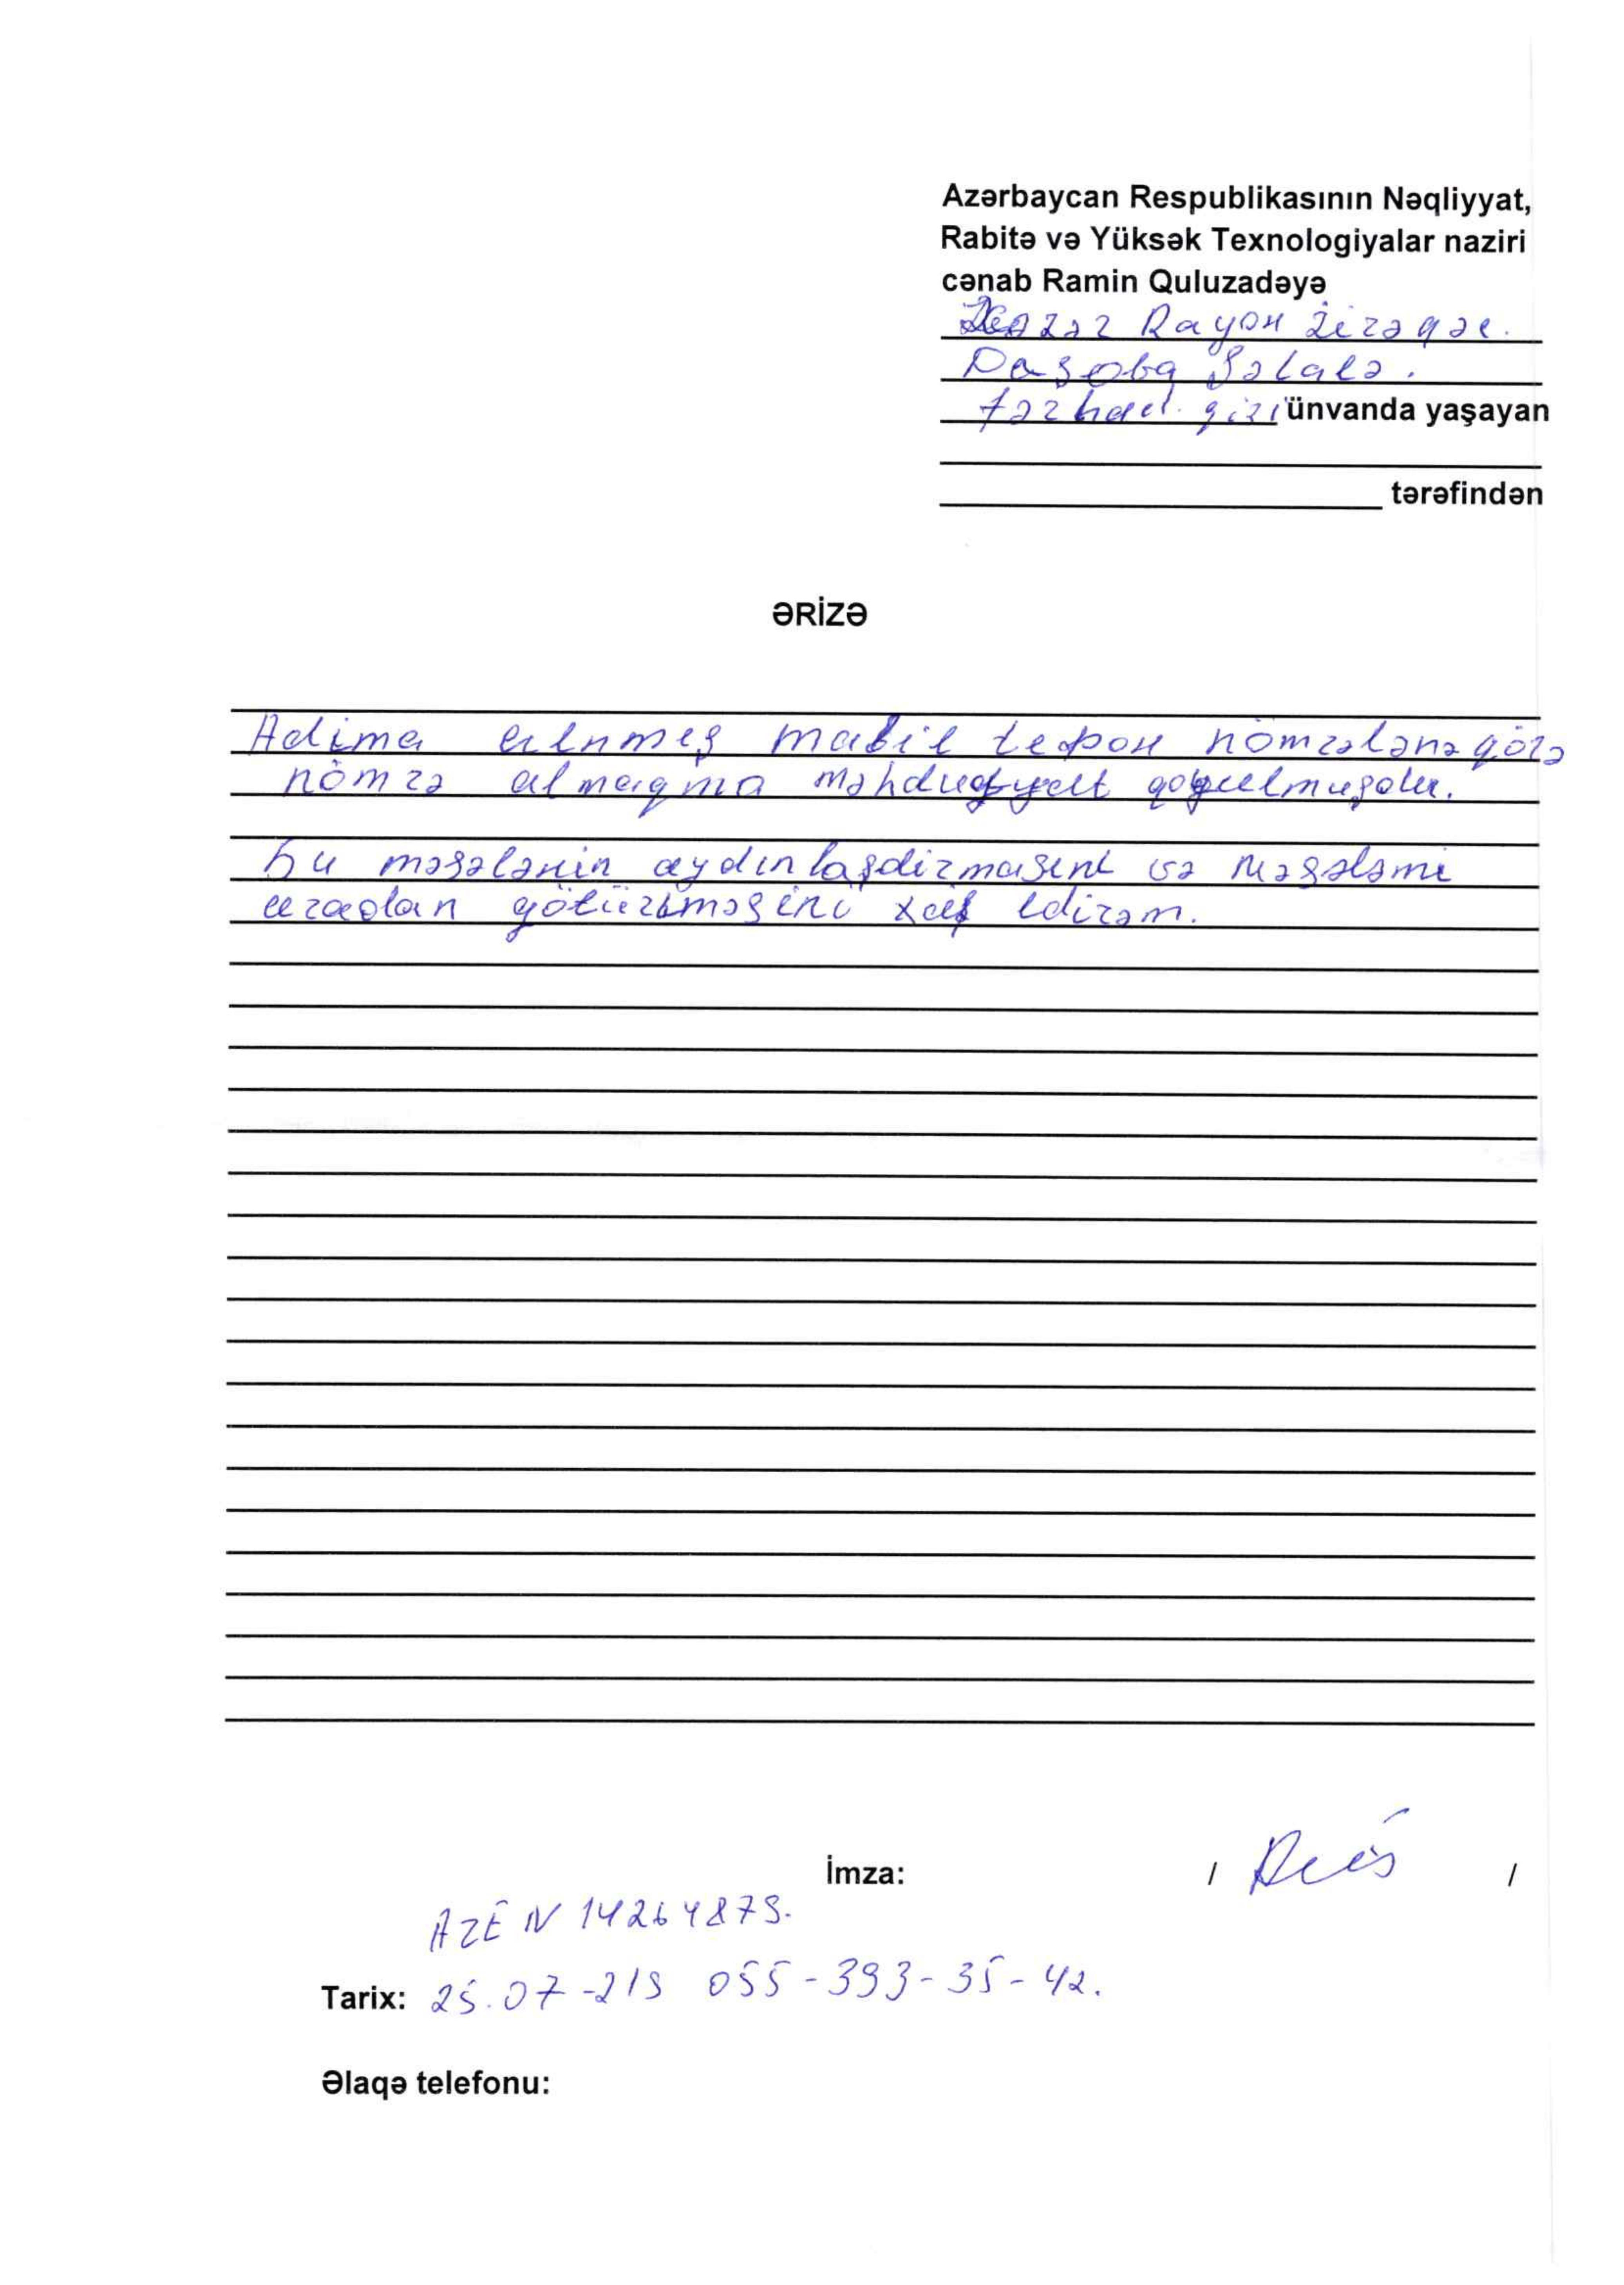 Azərbaycan Respublikasının Nəqliyyat,
Rabitə və Yüksək Texnologiyalar naziri
cənab Ramin Quluzadəyə
Rayon Zirəqəe.
Daşoba Şəlalə.
fərhad. qizi ünvanda yaşayan
tərəfindən
ƏRİZƏ
Adima alınmış mabil nömrələnə görə
nömrə almaqma qoyulmuşdu.
bu məsələnin aydınlaşdirmasını və məsələmi
aradan götürəməsini xaiş edirəm.
İmza: / /
AZE N 14264879.
Tarix: 25.07-219 055-393-35-42.
Əlaqə telefonu: